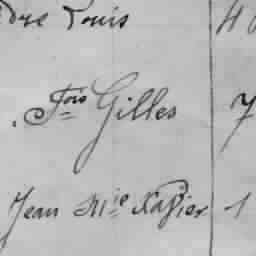 dre Louis 4
Fois Gilles 7
Jean Mie Xavier 1